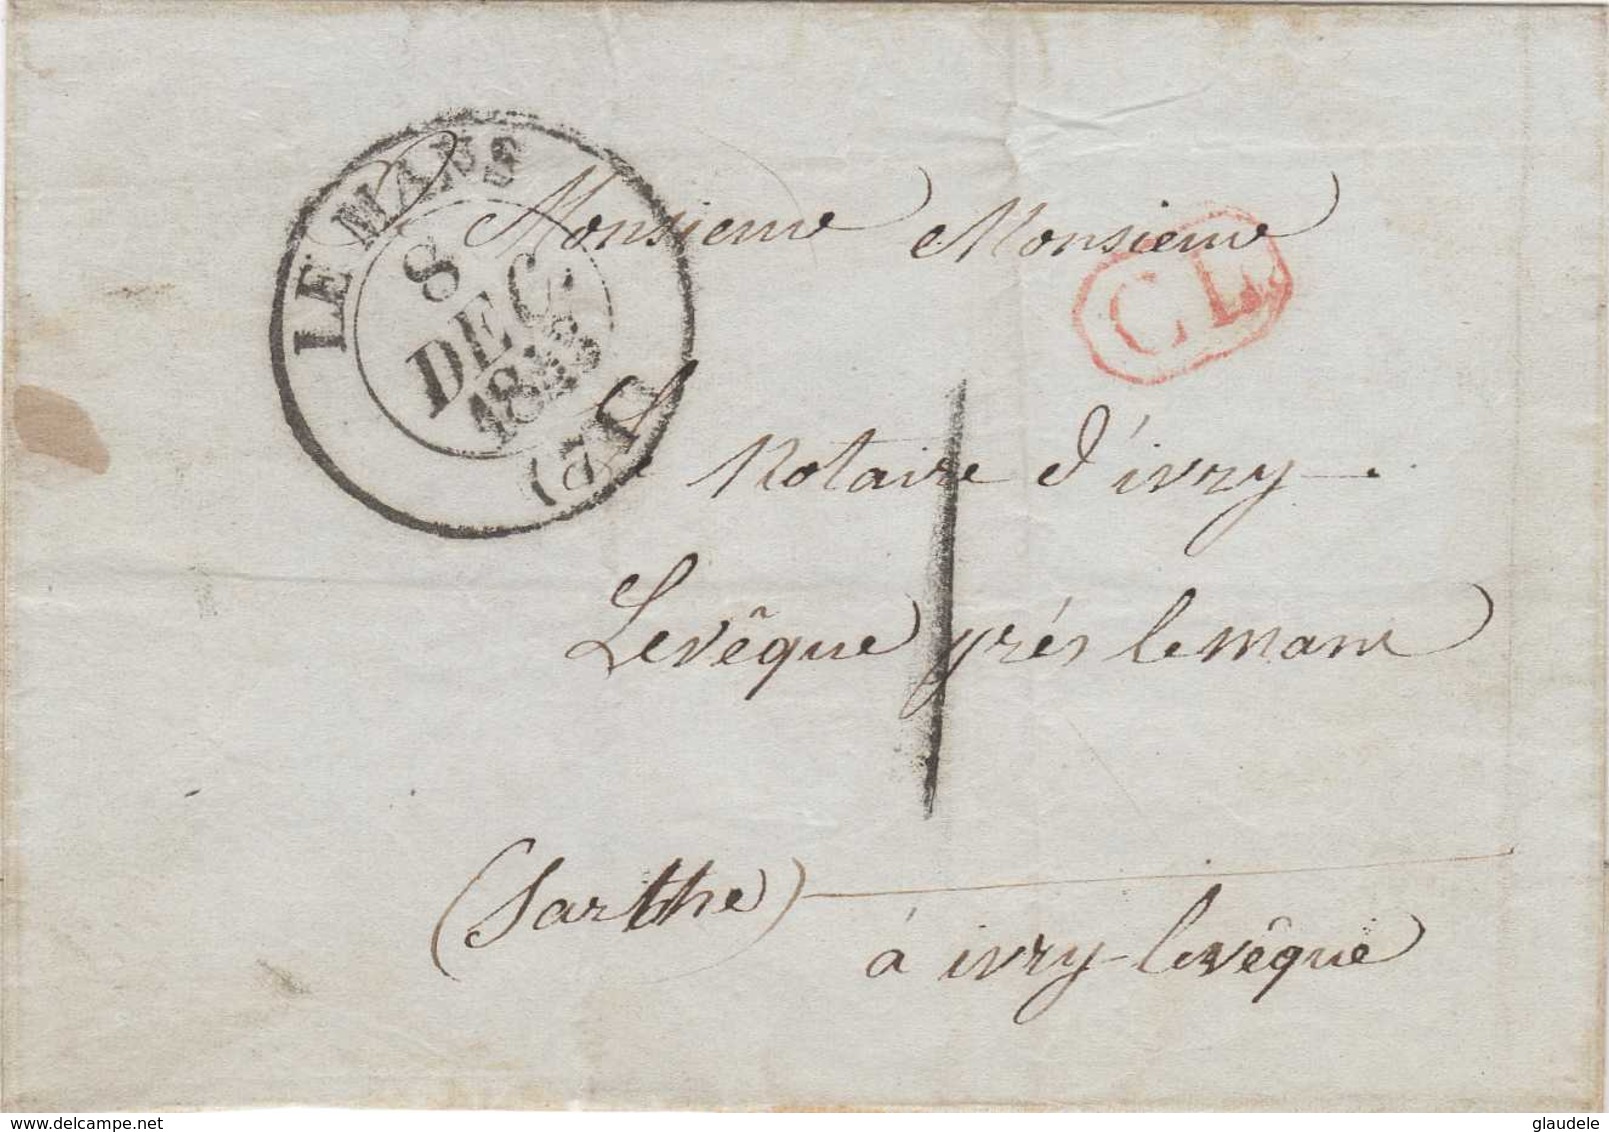 LE MANS
8
DEC.
(71)
CL.
A Monsieur Monsieur
Le Notaire d'ivry-
Levêque prés lemans
(Sarthe)
á ivry-levêque
1
delcampe.net
glaudele